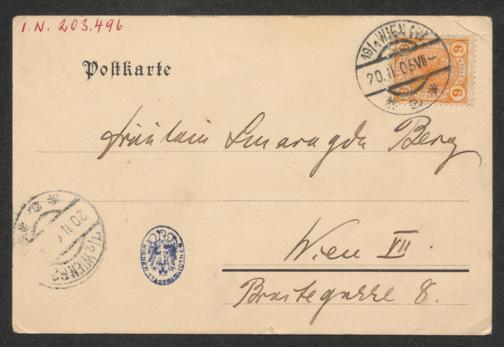 I. N. 203.496
Postkarte
19/1 WIEN
20. II. 05
6
6
Fräulein Smaragda Berg
Wien VII.
Breitegasse 8.
20 II
WIEN 62